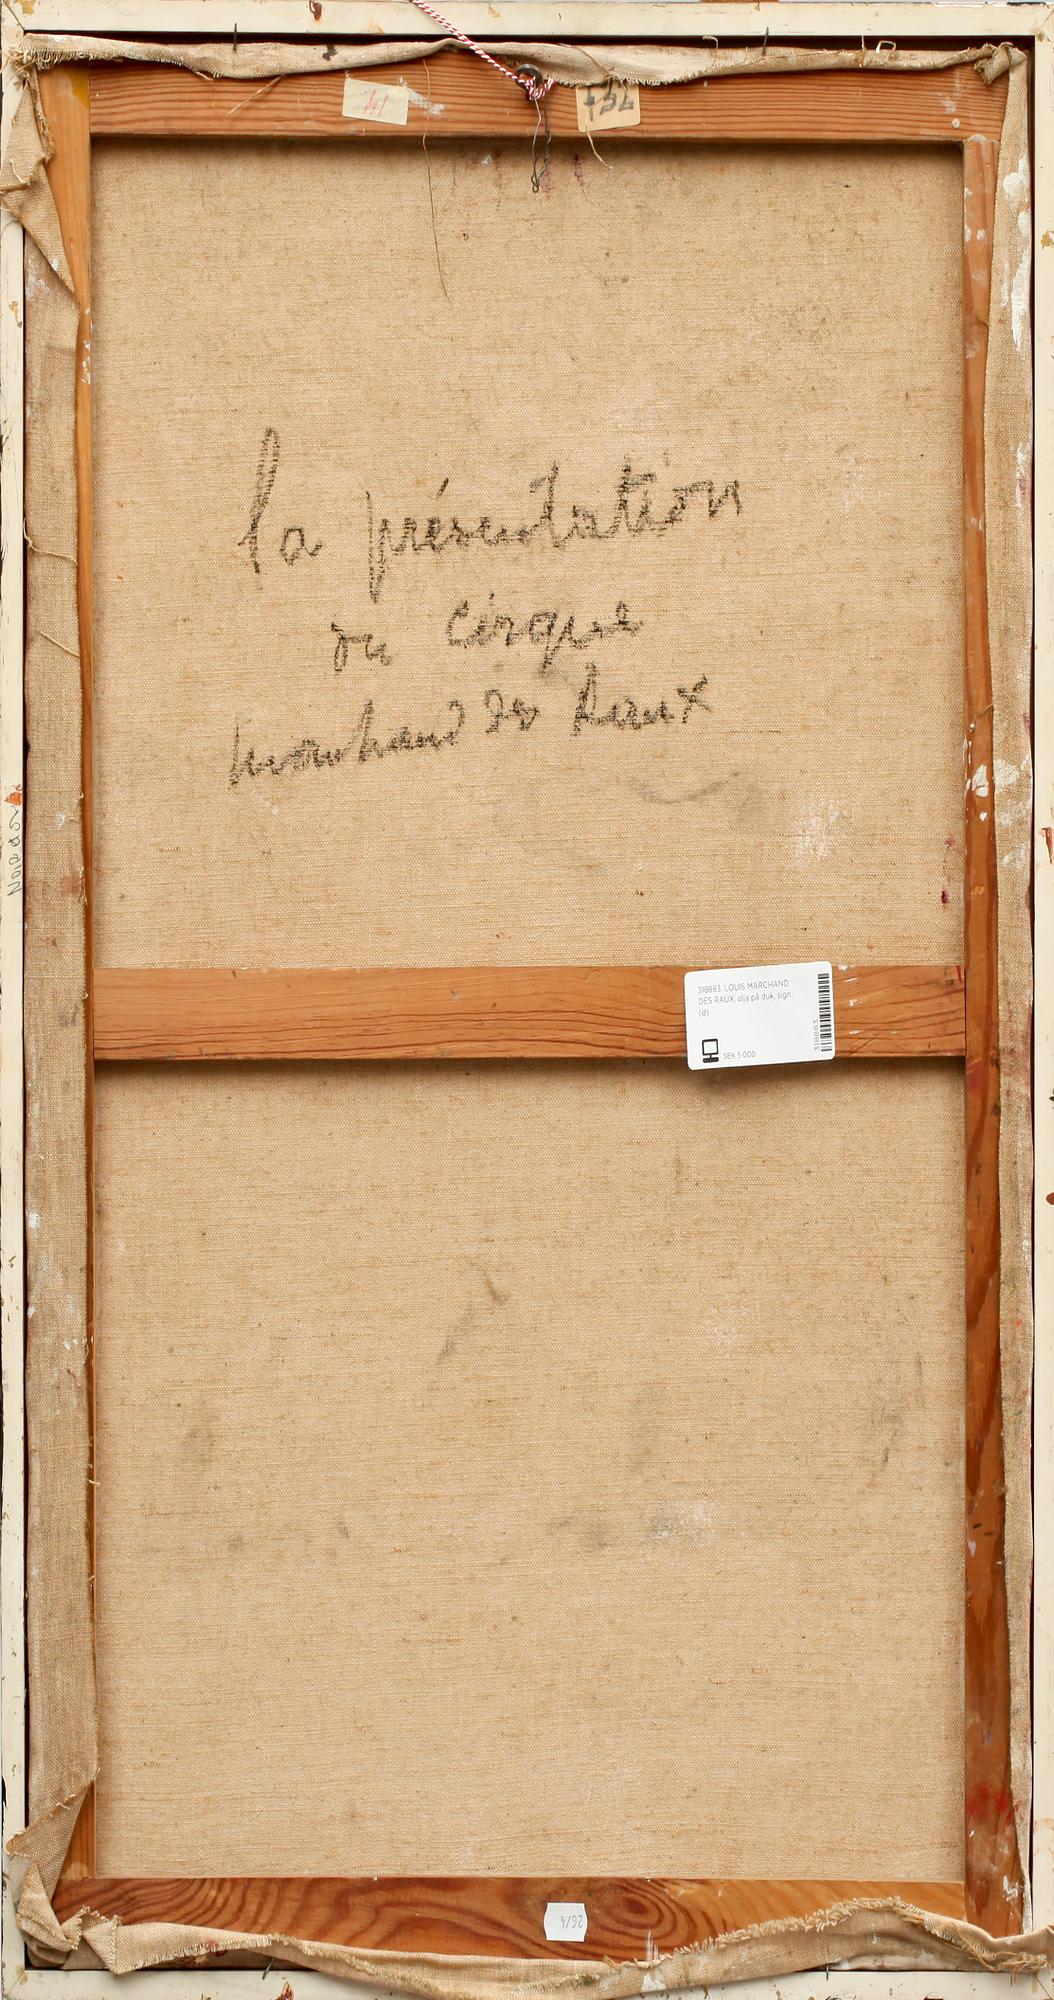 14
757
la présentation
du cirque
marchand des Raux
318883. LOUIS MARCHAND
DES RAUX, olja på duk, sign
(d)
318883
SEK 5 000
26/4